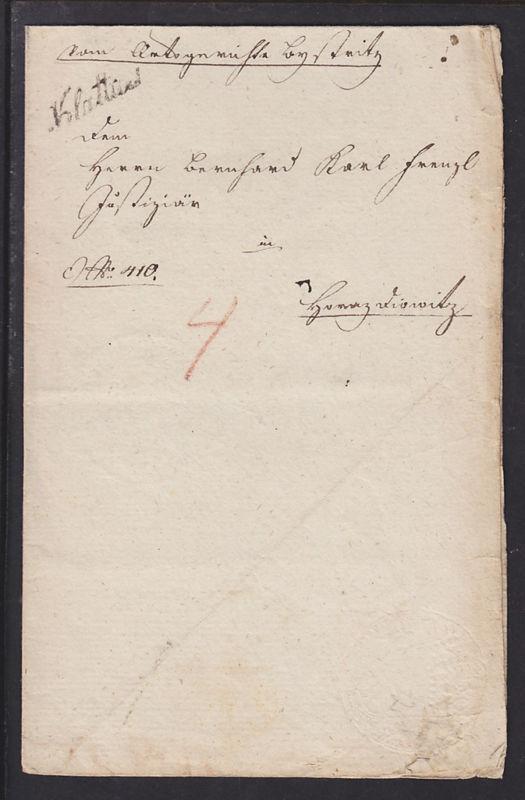 Vom Ortsgerichte Bystritz
Klattau
Dem
Herrn Bernhard Karl Frenzl
Justiziär
in
No. 410.
Horazdiowitz
4